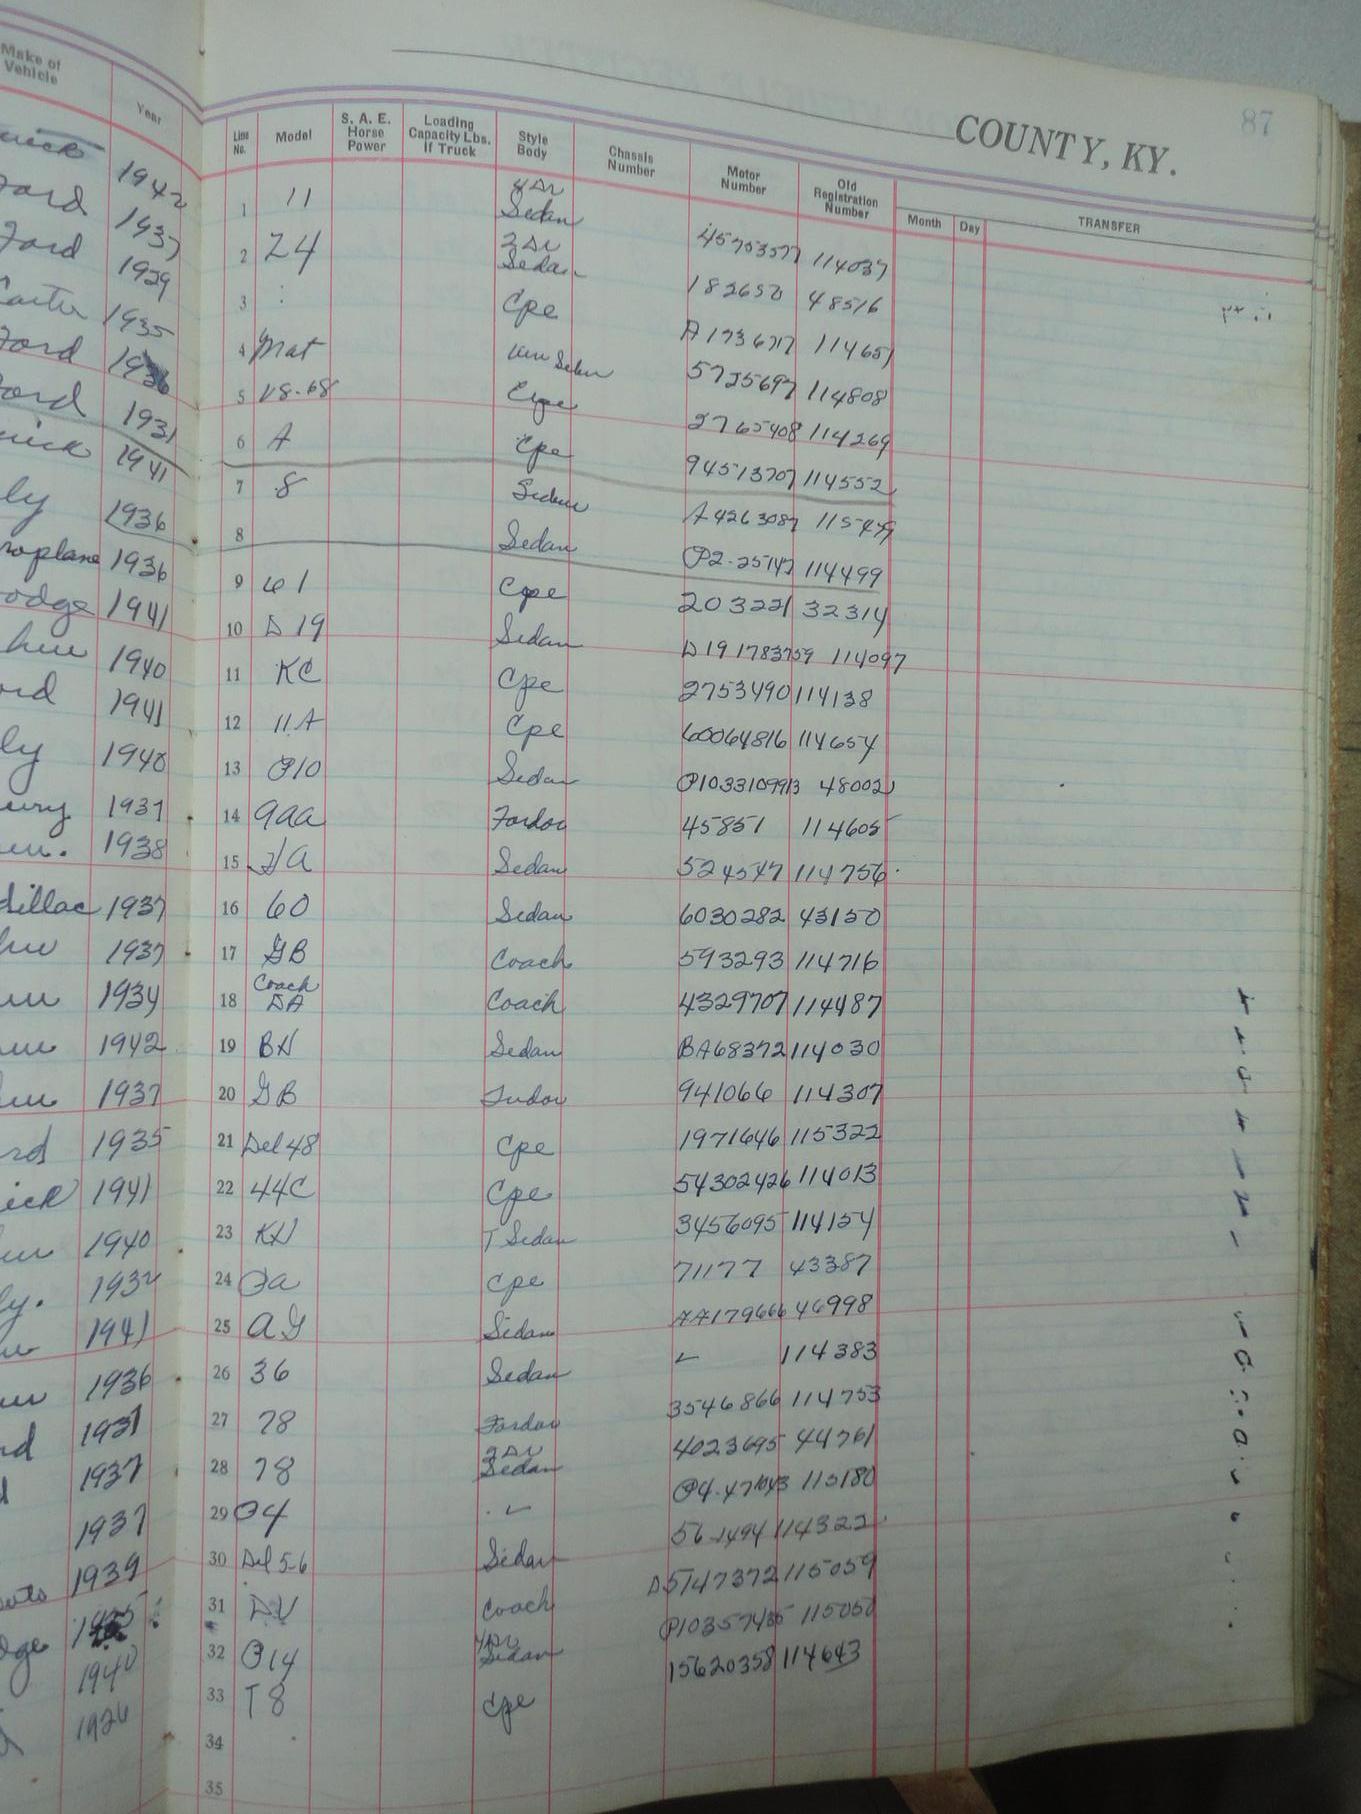 COUNTY, KY.
87
Make of Vehicle Year
Line No. Model S. A. E. Horse Power Loading Capacity Lbs. If Truck Style Body Chassis Number Motor Number Old Registration Number Month Day TRANSFER
1942
Ford 1937
Ford 1929
1935
Ford
1931
1941
1936
roplane 1936
odge 1941
1940
1941
ly 1940
1937
1938
dillac 1937
1937
1934
1942
1937
1935
1941
1940
1932
1941
1936
1937
1937
1937
1939
1940
1 11 4 Dr Sedan 45753577 114037
2 Z4 2 Dr Sedan 182650 48516
3 Cpe 114651
4 Mat 5725697 114808
5 V8-68 Cpe 2765408 114269
6 A Cpe 94513707 114552
7 8 Sedan A4263087
8 Sedan P2-25142 114499
9 61 Cpe 203221 32314
10 D19 Sedan D191783759 114097
11 KC Cpe 2753490 114138
12 11A Cpe 60064816 114654
13 P10 Sedan 48002
14 9aa Fordor 45851 114605
15 JA Sedan 524547 114756
16 60 Sedan 6030282 43150
17 GB Coach 593293 114716
18 Coach DA Coach 4329707 114487
19 BH Sedan BA68372 114030
20 GB Tudor 941066 114307
21 Del 48 Cpe 1971646 115322
22 44C Cpe 54302426 114013
23 KH T Sedan 3456095 114154
24 Cpe 71177 43387
25 AG Sedan AA179666 46998
26 36 Sedan 114383
27 78 Fordor 3546866 114753
28 78 2 Dr Sedan 4023695 44761
29 P4 115180
30 Del 5-6 Sedan 114322
31 DU Coach D5147372 115059
32 P14 4 Dr Sedan 115050
33 T8 Cpe 15620358 114643
34
35